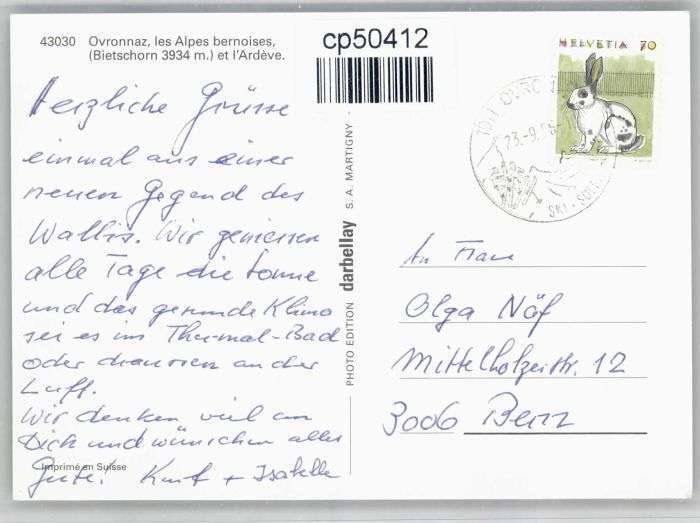 43030 Ovronnaz, les Alpes bernoises,
(Bietschorn 3934 m.) et l'Ardève.
cp50412
HELVETIA 70
23.-9.
Herzliche Grüsse
einmal aus einer
neuen Gegend des
Wallis. Wir geniessen
alle Tage die Sonne
und das gesunde Klima
sei es im Thermal-Bad
oder draussen an der
Luft.
Wir denken viel an
Dich und wünschen alles
Gute! Kurt + Isabelle
Imprimé en Suisse
PHOTO EDITION darbellay S. A. MARTIGNY
An Frau
Olga Näf
Mittelholzerstr. 12
3006 Bern